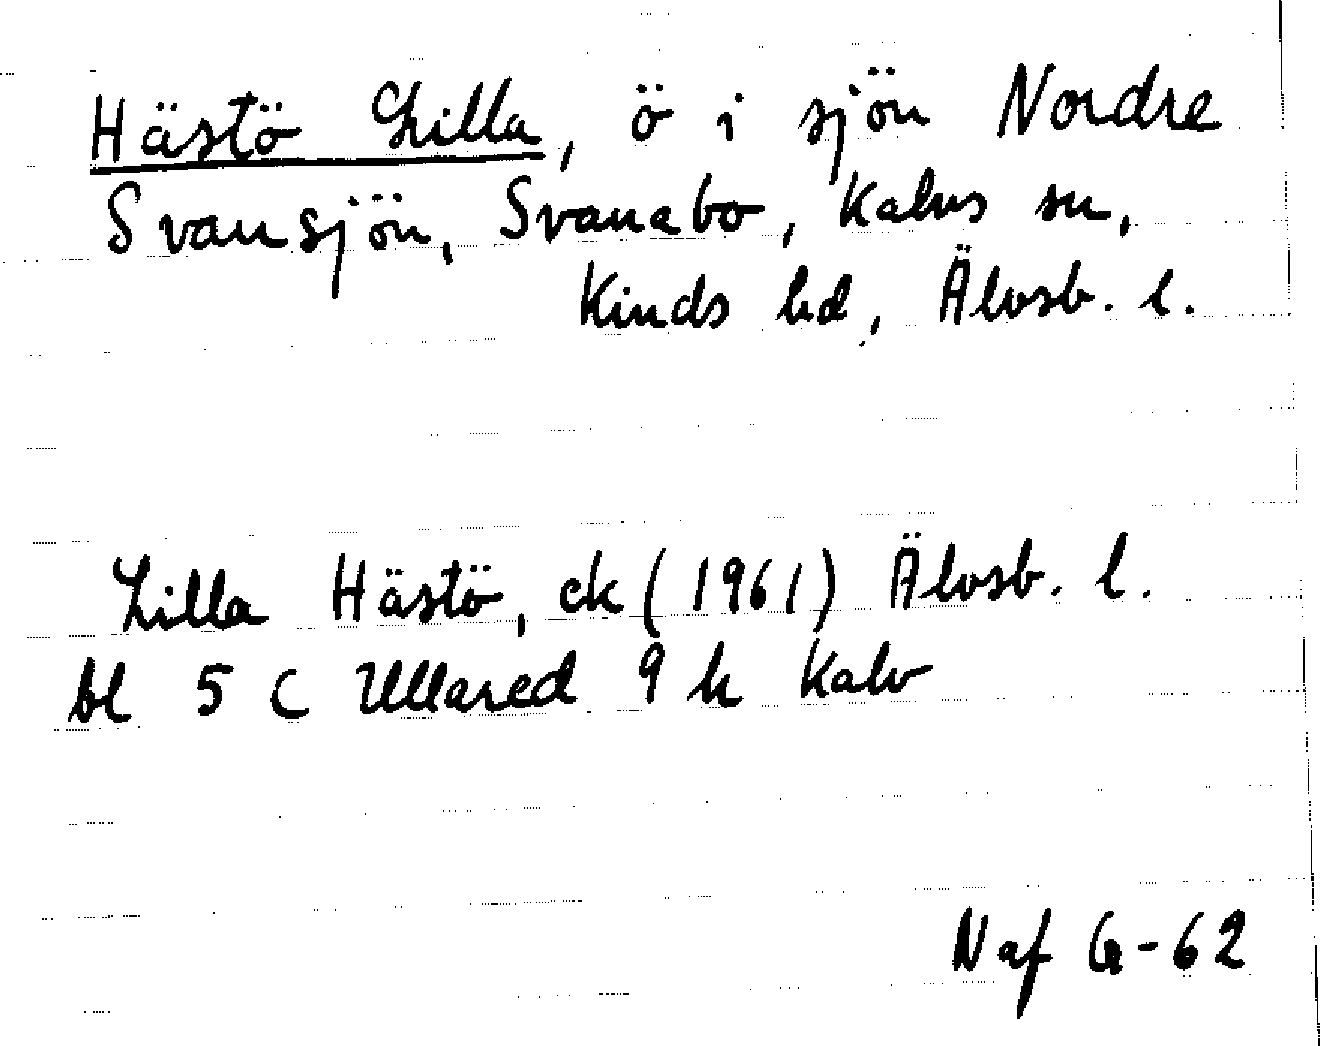 Hästö Lilla, ö i sjön Nordre
Svansjön, Svanabo, Kalvs sn,
Kinds hd, Älvsb. l.
Lilla Hästö, ek (1961) Älvsb. l.
bl 5 C Ullared 9 h Kalv
Naf G-62